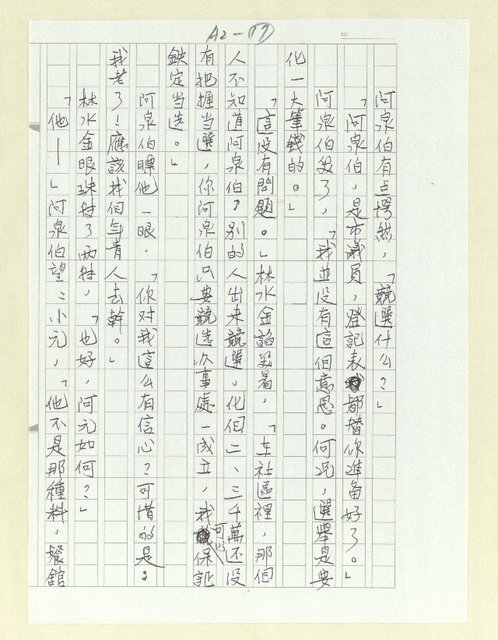 A2-17
阿泉伯有点愕然，「競選什么？」
「阿泉伯，是市議員，登記表都替你準备好了。」
阿泉伯笑了，「我並没有這個意思。何況，選举是要
化一大筆錢的。」
「這没有問題。」林水金諂笑著，「在社區裡，那個
人不知道阿泉伯？別的人出來競選，化個二、三千萬还没
有把握当選，你阿泉伯只要競选办事處一成立，我可以保証
鉄定当选。」
阿泉伯瞟他一眼，「你对我這么有信心？可惜的是：
我老了！應該找個年青人去幹。」
林水金眼珠轉了兩轉，「也好，阿元如何？」
「他——」阿泉伯望：小元，「他不是那種料，餐館